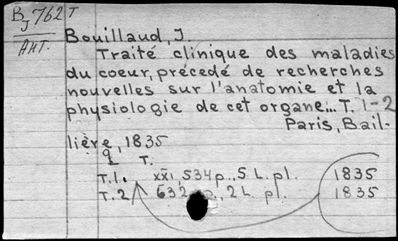 B J 762 T
Ант.
Bouillaud, J.
Traité clinique des maladies
du coeur, précedé de recherches
nouvelles sur l'anatomie et la
physiologie de cet organe... T. 1-2
Paris, Bail-
lière, 1835
2 T.
T.1. XXI, 534 p., 5 L. pl. 1835
T.2 632 p., 2 L. pl. 1835